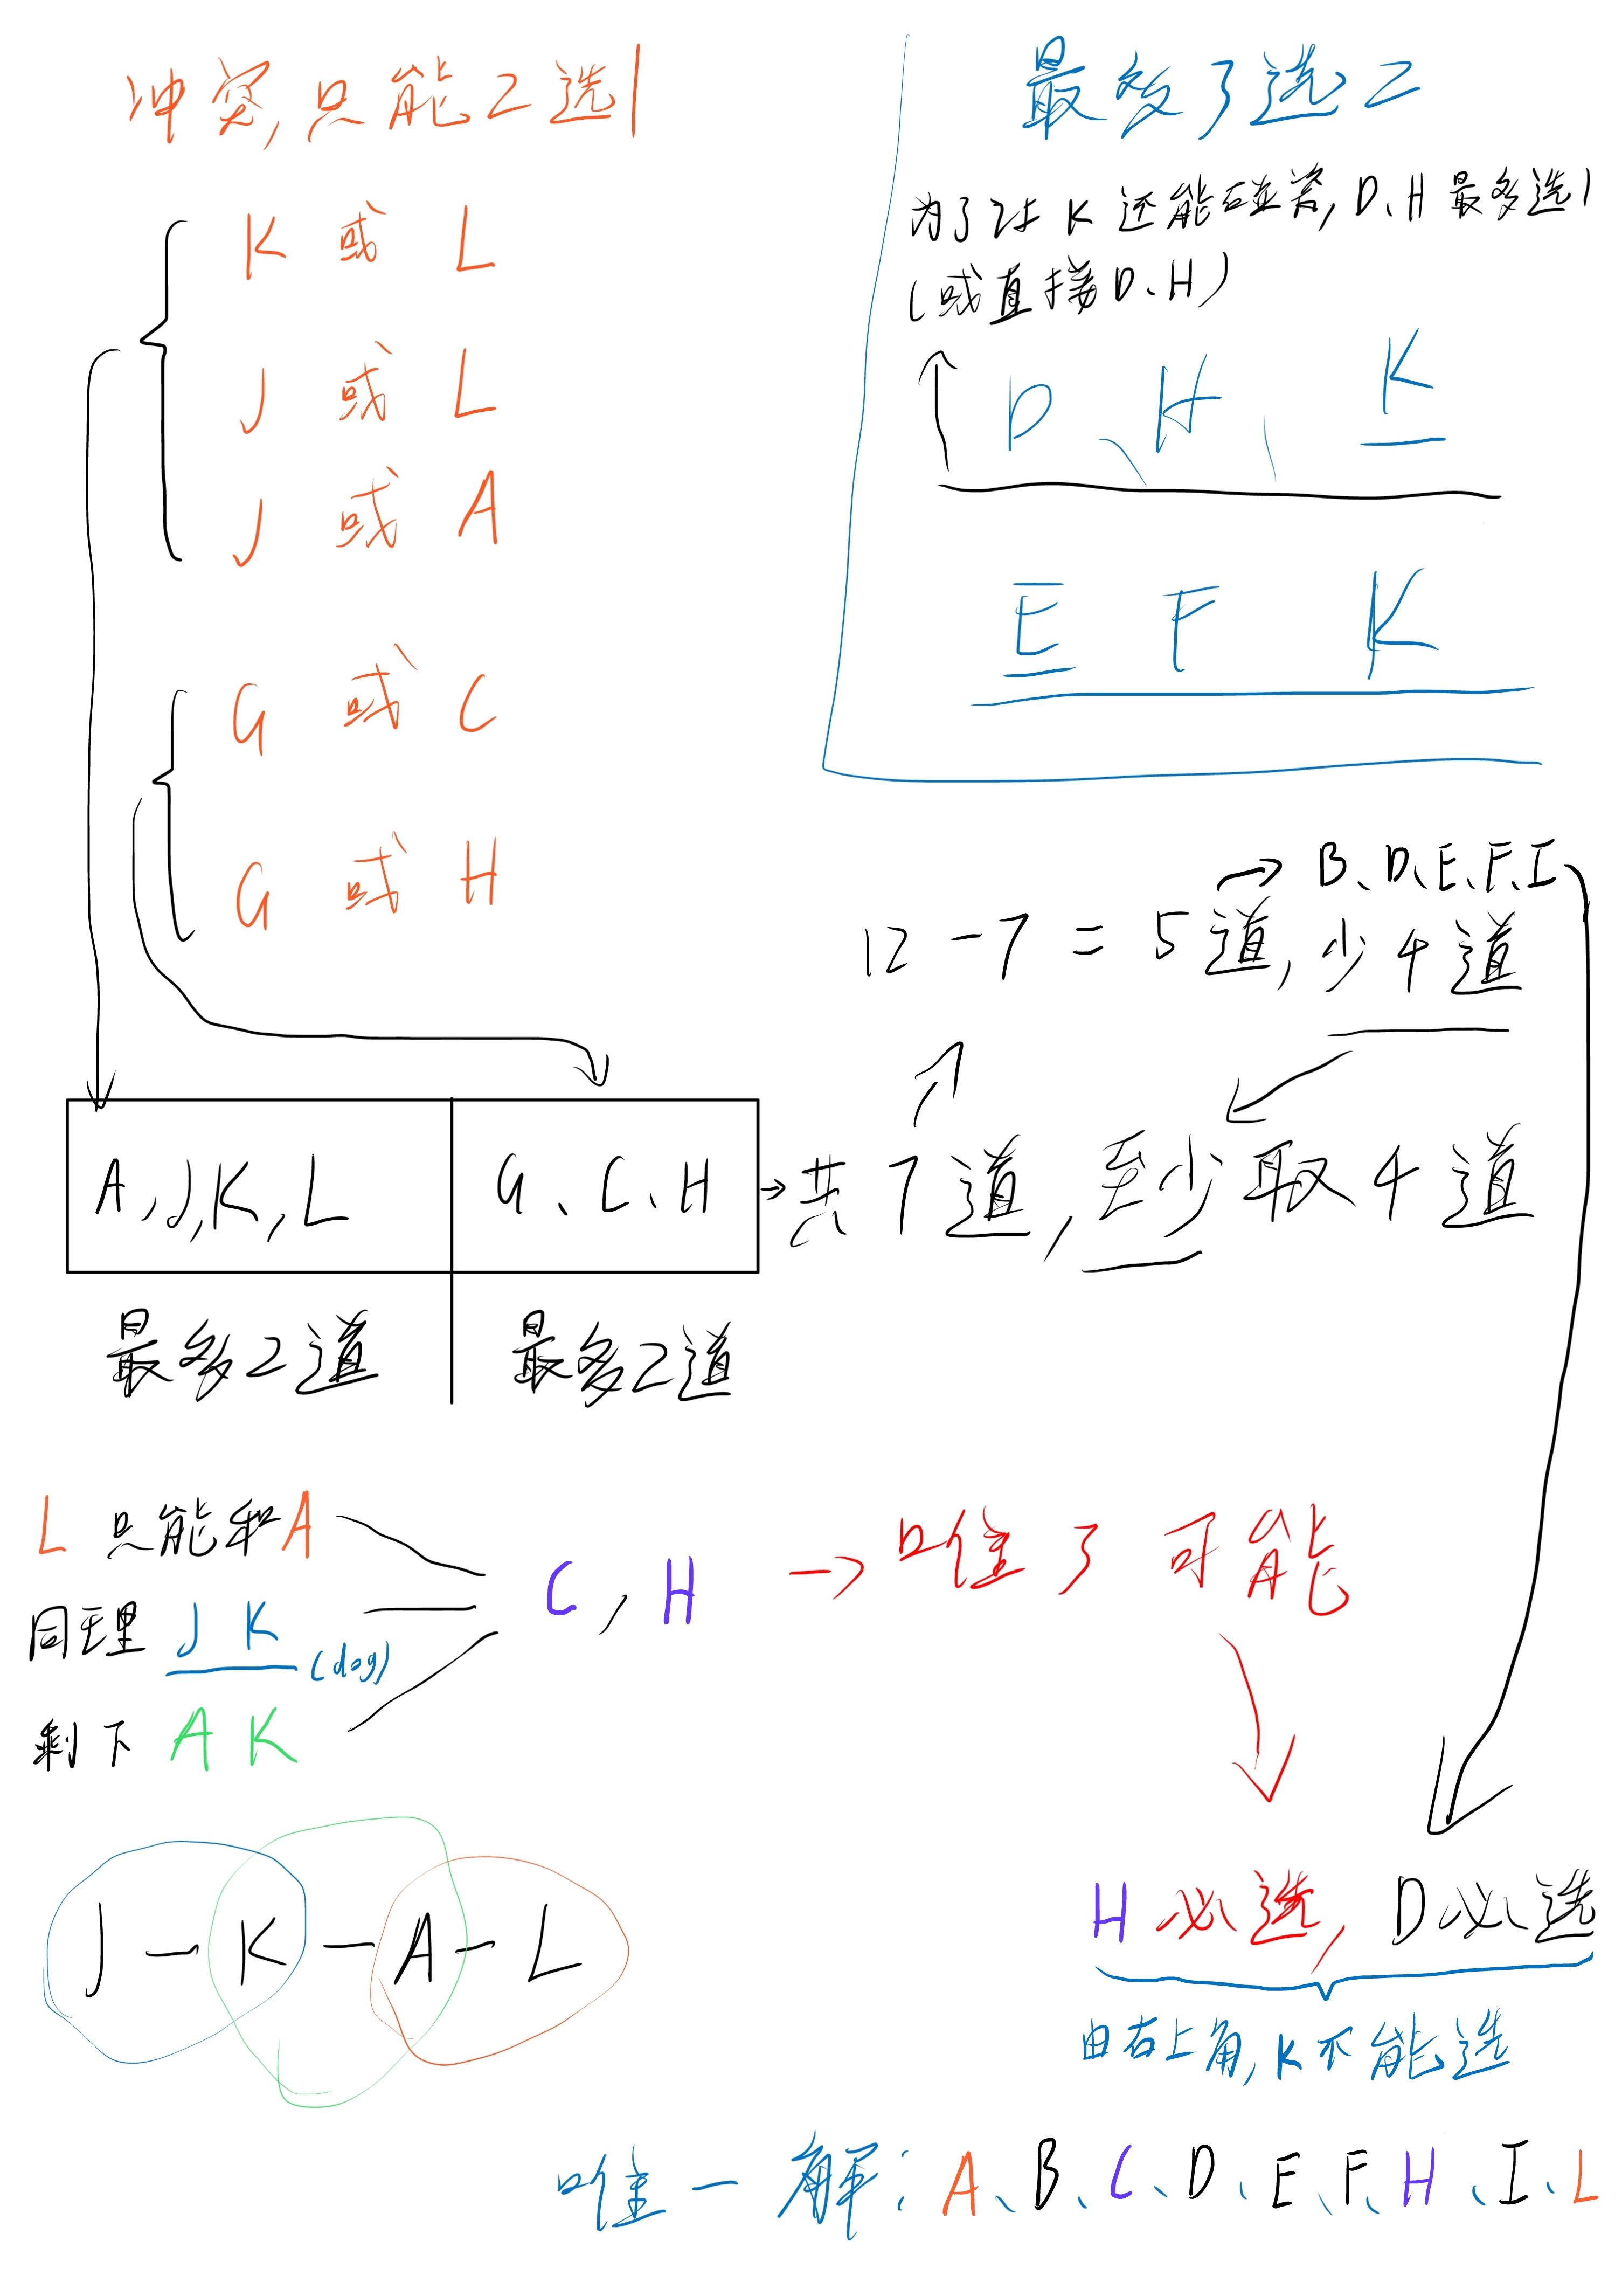 冲突,只能2选1
K 或 L
J 或 L
J 或 A
G 或 C
G 或 H
最多3选2
为了让 K 还能碰瓷, D、H 最多选1
(或直接 D、H)
D、H、K
E F K
→ B、D、E、F、I
12 - 7 = 5道, 少4道
A, J, K, L
G、C、H
→ 共7道, 至少取4道
最多2道
最多2道
L 只能和A
同理 J K (dog)
剩下 A K
C, H → 唯3可能
J - K - A - L
H 必选, D必选
由右上角, K不能选
唯一解: A、B、C、D、E、F、H、I、L